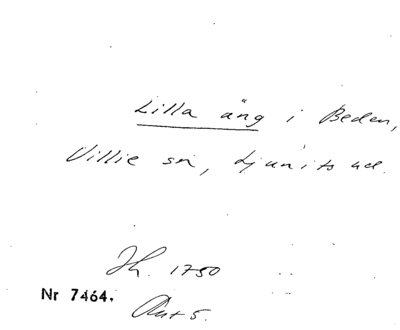 Lilla äng i Beden,
Villie sn, Ljunits hd.
Jh. 1750
Nr 7464.
Akt 5.